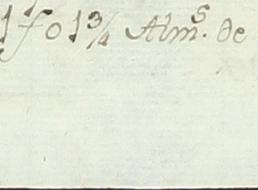 1 f o 1 3/4 Alm.s de